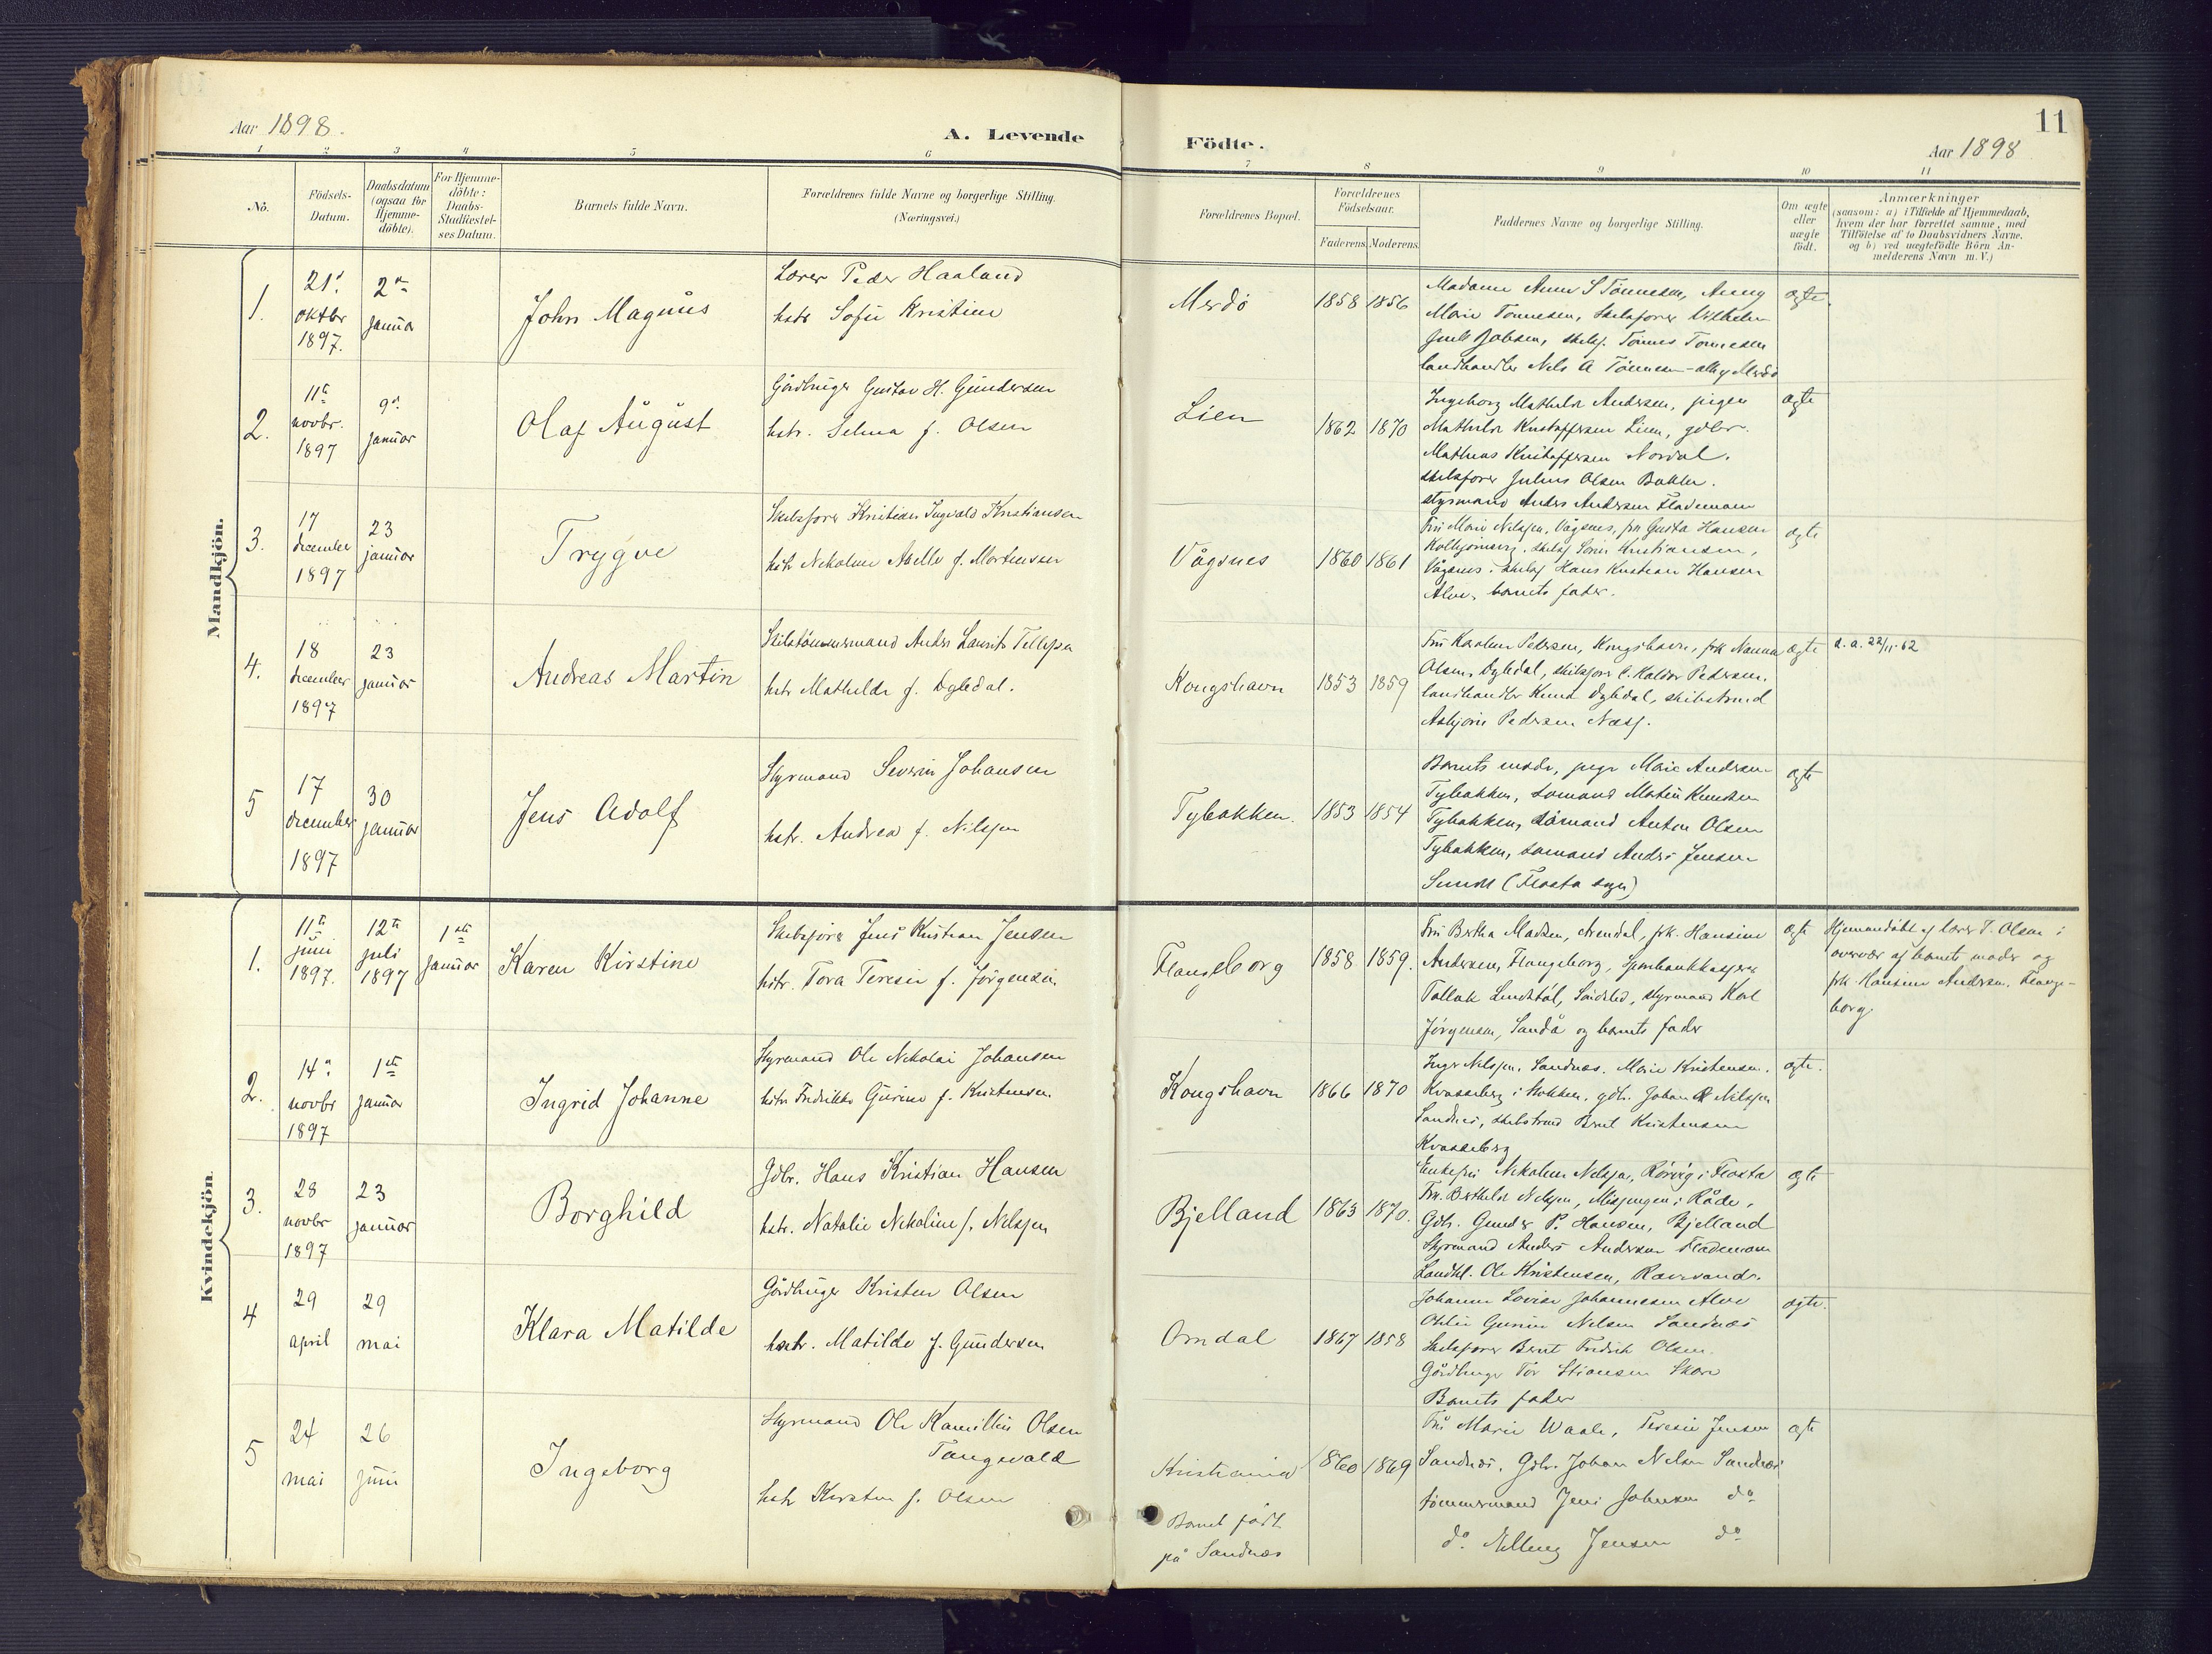 11
Aar 1898.
A. Levende
Födte.
Aar 1898
1 2 3 4 5 6
7 8 9 10 11
No.
Födsels-
Datum.
Daabsdatum
(ogsaa for
Hjemme-
döbte).
For Hjemme-
döbte:
Daabs-
Stadfæstel-
ses Datum.
Barnets fulde Navn.
Forældrenes fulde Navne og borgerlige Stilling.
(Næringsvei.)
Forældrenes Bopæl.
Forældrenes
Födselsaar.
Faderens. Moderens.
Faddernes Navne og borgerlige Stilling.
Om ægte
eller
uægte
födt.
Anmærkninger
(saasom: a) i Tilfælde af Hjemmedaab,
hvem der har forrettet samme, med
Tilföielse af to Daabsvidners Navne.
og b) ved uægtefödte Börn An-
melderens Navn m. V.)
Mandkjön.
1.
21.
oktbr
1897.
2
januar
John Magnus
Lærer Peder Haaland
hstr Sofie Kristine
Merdö
1858 1856
Madame Anne S Tönnesen, Anny
Marie Tönnesen, Skibsförer
skibsf. Tönnes Tönnesen
landhandler Nils A Tönnesen - alle af Merdö
ægte.
2.
11te
novbr.
1897
9.
januar
Olaf August
Gårdbruger Gustav H. Gundersen
hstr. Selma f. Olsen
Lien
1862 1870
Ingeborg Mathilde Andersen, pigen
Mathilde Kristoffersen Lien, gdbr.
Mathias Kristoffersen Nordal.
skibsförer Julius Olsen
styrmand Anders Andersen Flademoen
ægte
3.
17
december
1897
23
januar
Trygve
Skibsförer Kristian Ingvald Kristiansen
hstr Nikoline Abelle f. Mortensen
Vågsnes
1860 1861
Fru Marie Nilsen, Vågsnes, frk Gusta Hansen
Kolbjörnsvig, skibsf Sören Kristiansen,
Vågsnes, skibsf Hans Kristian Hansen
Alve, barnets fader.
ægte
4.
18
december
1897
23
januar
Andreas Martin
Skibstömmermand Anders Laurits Tellefsen
hstr Mathilde f. Dybedal.
Kongshavn
1853 1859
Fru Karoline Pedersen, Kongshavn, frk Nanna
Olsen, Dybedal, skibsförer C. Haldor Pedersen,
landhandler Knud Dybedal, skibstömd
Asbjörn Pedersen Næs.
ægte
d. a. 22/11-62
5
17
december
1897
30
januar
Jens Adolf
Styrmand Severin Johansen
hstr. Andrea f. Nilsen
Tybakken.
1853 1854
Barnets moder, pige Marie Andersen
Tybakken, sömand Martin Knudsen
Tybakken, sömand Anton Olsen
Tybakken, sömand Anders Jensen
(Flosta sogn)
ægte
Kvindekjön
1.
11te
juni
1897.
12te
juli
1897
1ste
januar
Karen Kirstine
Skibsförer Jens Kristian Jensen
hstr. Tora Teresie f. Jörgensen
Flangeborg
1858 1859.
Fru Bertha Madsen, Arendal, frk. Hansine
Andersen, Flangeborg, Sparebankkasserer
Tallak Lindstöl, Söndeled, styrmand Karl
Jörgensen, Sandå og barnets fader
ægte
Hjemmedöbt af lærer T. Olsen i
overvær af barnets moder og
frk Hansine Andersen, Flange-
borg.
2.
14.
novbr
1897
1ste
januar
Ingrid Johanne
Styrmand Ole Nikolai Johansen
hstr Fredrikke Gurine f. Kristensen
Kongshavn
1866 1870
Inger Nilsen, Sandnæs. Marie Kristensen.
Kvasseberg i Stokken, gdb. Johan Nilsen
Sandnes, skibstömd Bernt Kristensen
Kvasseberg
ægte.
3.
28
novbr
1897
23
januar
Borghild
Gdbr. Hans Kristian Hansen
hstr. Natalie Nikoline f. Nilsen
Bjelland
1863 1870.
Enkefru Nikoline Nilsen, Rörvig i Flosta
Frk. Berthilde Nilsen, Misjengen i Råde,
Gdb. Gunder P. Hansen, Bjelland
Styrmand Anders Andersen Flademoen
Landhl. Ole Kristensen, Rævesand.
ægte
4
29
april
29
mai
Klara Matilde
Gårdbruger Kristen Olsen
hustr. Matilde f. Gundersen
Omdal
1867 1858
Johanne Lovise Johannesen Alve
Othilie Gurine Nilsen Sandnæs
Skibsförer Bernt Fredrik Olsen.
Gårdbruger Tor Stiansen Skare
Barnets fader
ægte.
5
24
mai
26
juni
Ingeborg
Styrmand Ole Kamillus Olsen
Tangevald
hstr Kirsten f. Olsen
Kristiania
Barnet födt
på Sandnæs
1860 1869
Fru Marie Waale, Teresie Jensen
Sandnæs, Gdbr. Johan Nilsen Sandnæs
tömmermand Jens Johnsen do
do. Jensen do
ægte